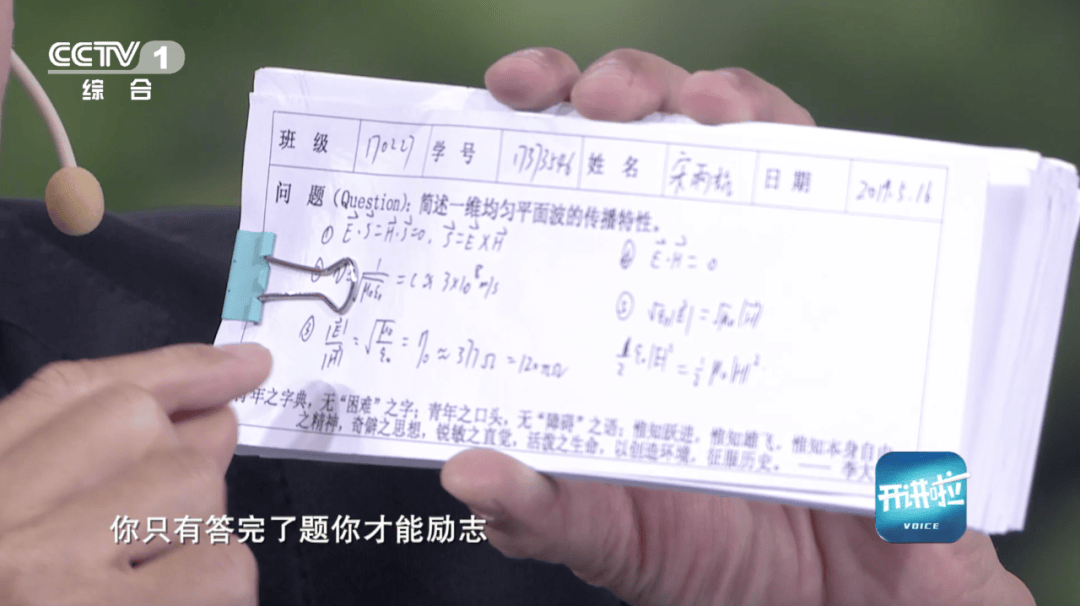 CCTV 1
综合
班级 170227 学号 17373546 姓名 宋雨 日期 2019.5.16
问题（Question）：简述一维均匀平面波的传播特性。
① E⃗·S⃗=H⃗·S⃗=0，S⃗=E⃗×H⃗
④ E⃗·H⃗=0
② 1/√μ₀ε₀ = C ≈ 3×10⁸m/s
⑤ √ε₀|E⃗|=√μ₀|H⃗|
③ |E⃗|/|H⃗| = √μ₀/ε₀ = η₀ ≈ 377Ω = 120πΩ
1/2 ε₀|E|²=1/2 μ₀|H|²
年之字典，无“困难”之字；青年之口头，无“障碍”之语；惟知跃进，惟知雄飞，惟知本身自由
之精神，奇僻之思想，锐敏之直觉，活泼之生命，以创造环境，征服历史。 —— 李大
开讲啦
VOICE
你只有答完了题你才能励志